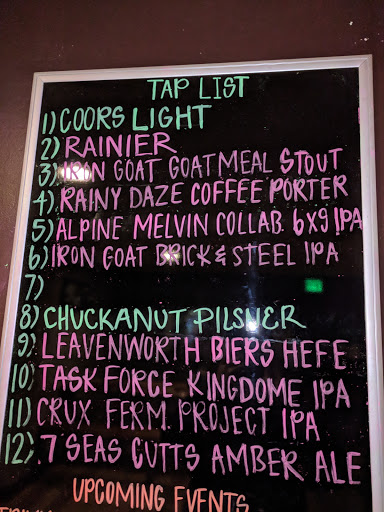 TAP LIST
1) COORS LIGHT
2) RAINIER
3) IRON GOAT GOATMEAL STOUT
4) RAINY DAZE COFFEE PORTER
5) ALPINE MELVIN COLLAB. 6X9 IPA
6) IRON GOAT BRICK & STEEL IPA
7)
8) CHUCKANUT PILSNER
9) LEAVENWORTH BIERS HEFE
10) TASK FORCE KINGDOME IPA
11) CRUX FERM. PROJECT IPA
12) 7 SEAS CUTTS AMBER ALE
UPCOMING EVENTS